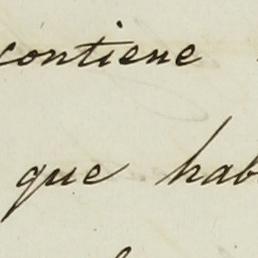 contiene
que hab